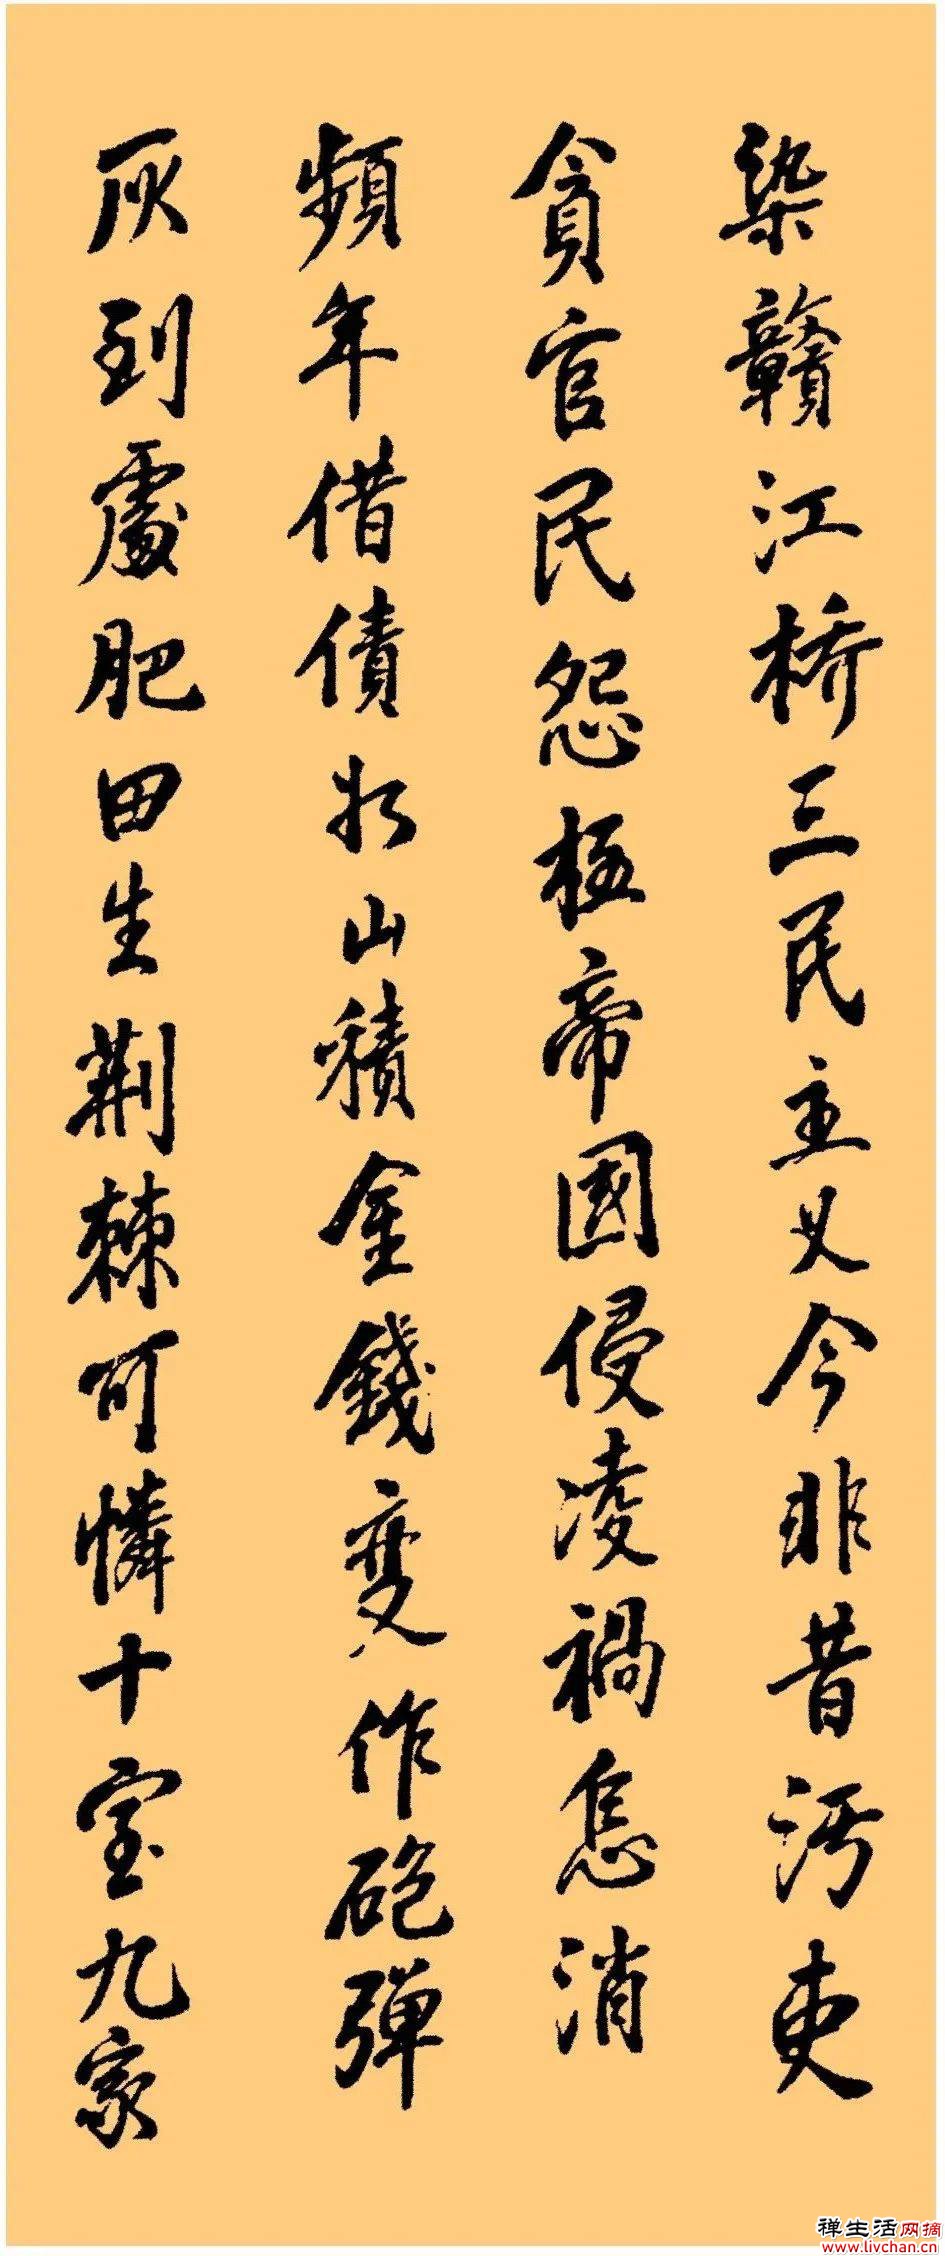 染贛江桥三民主义今非昔污吏
貪官民怨极帝國侵凌禍怎消
頻年借債如山積金錢变作砲弹
灰到處肥田生荆棘可憐十室九家
禅生活网摘
www.livchan.cn